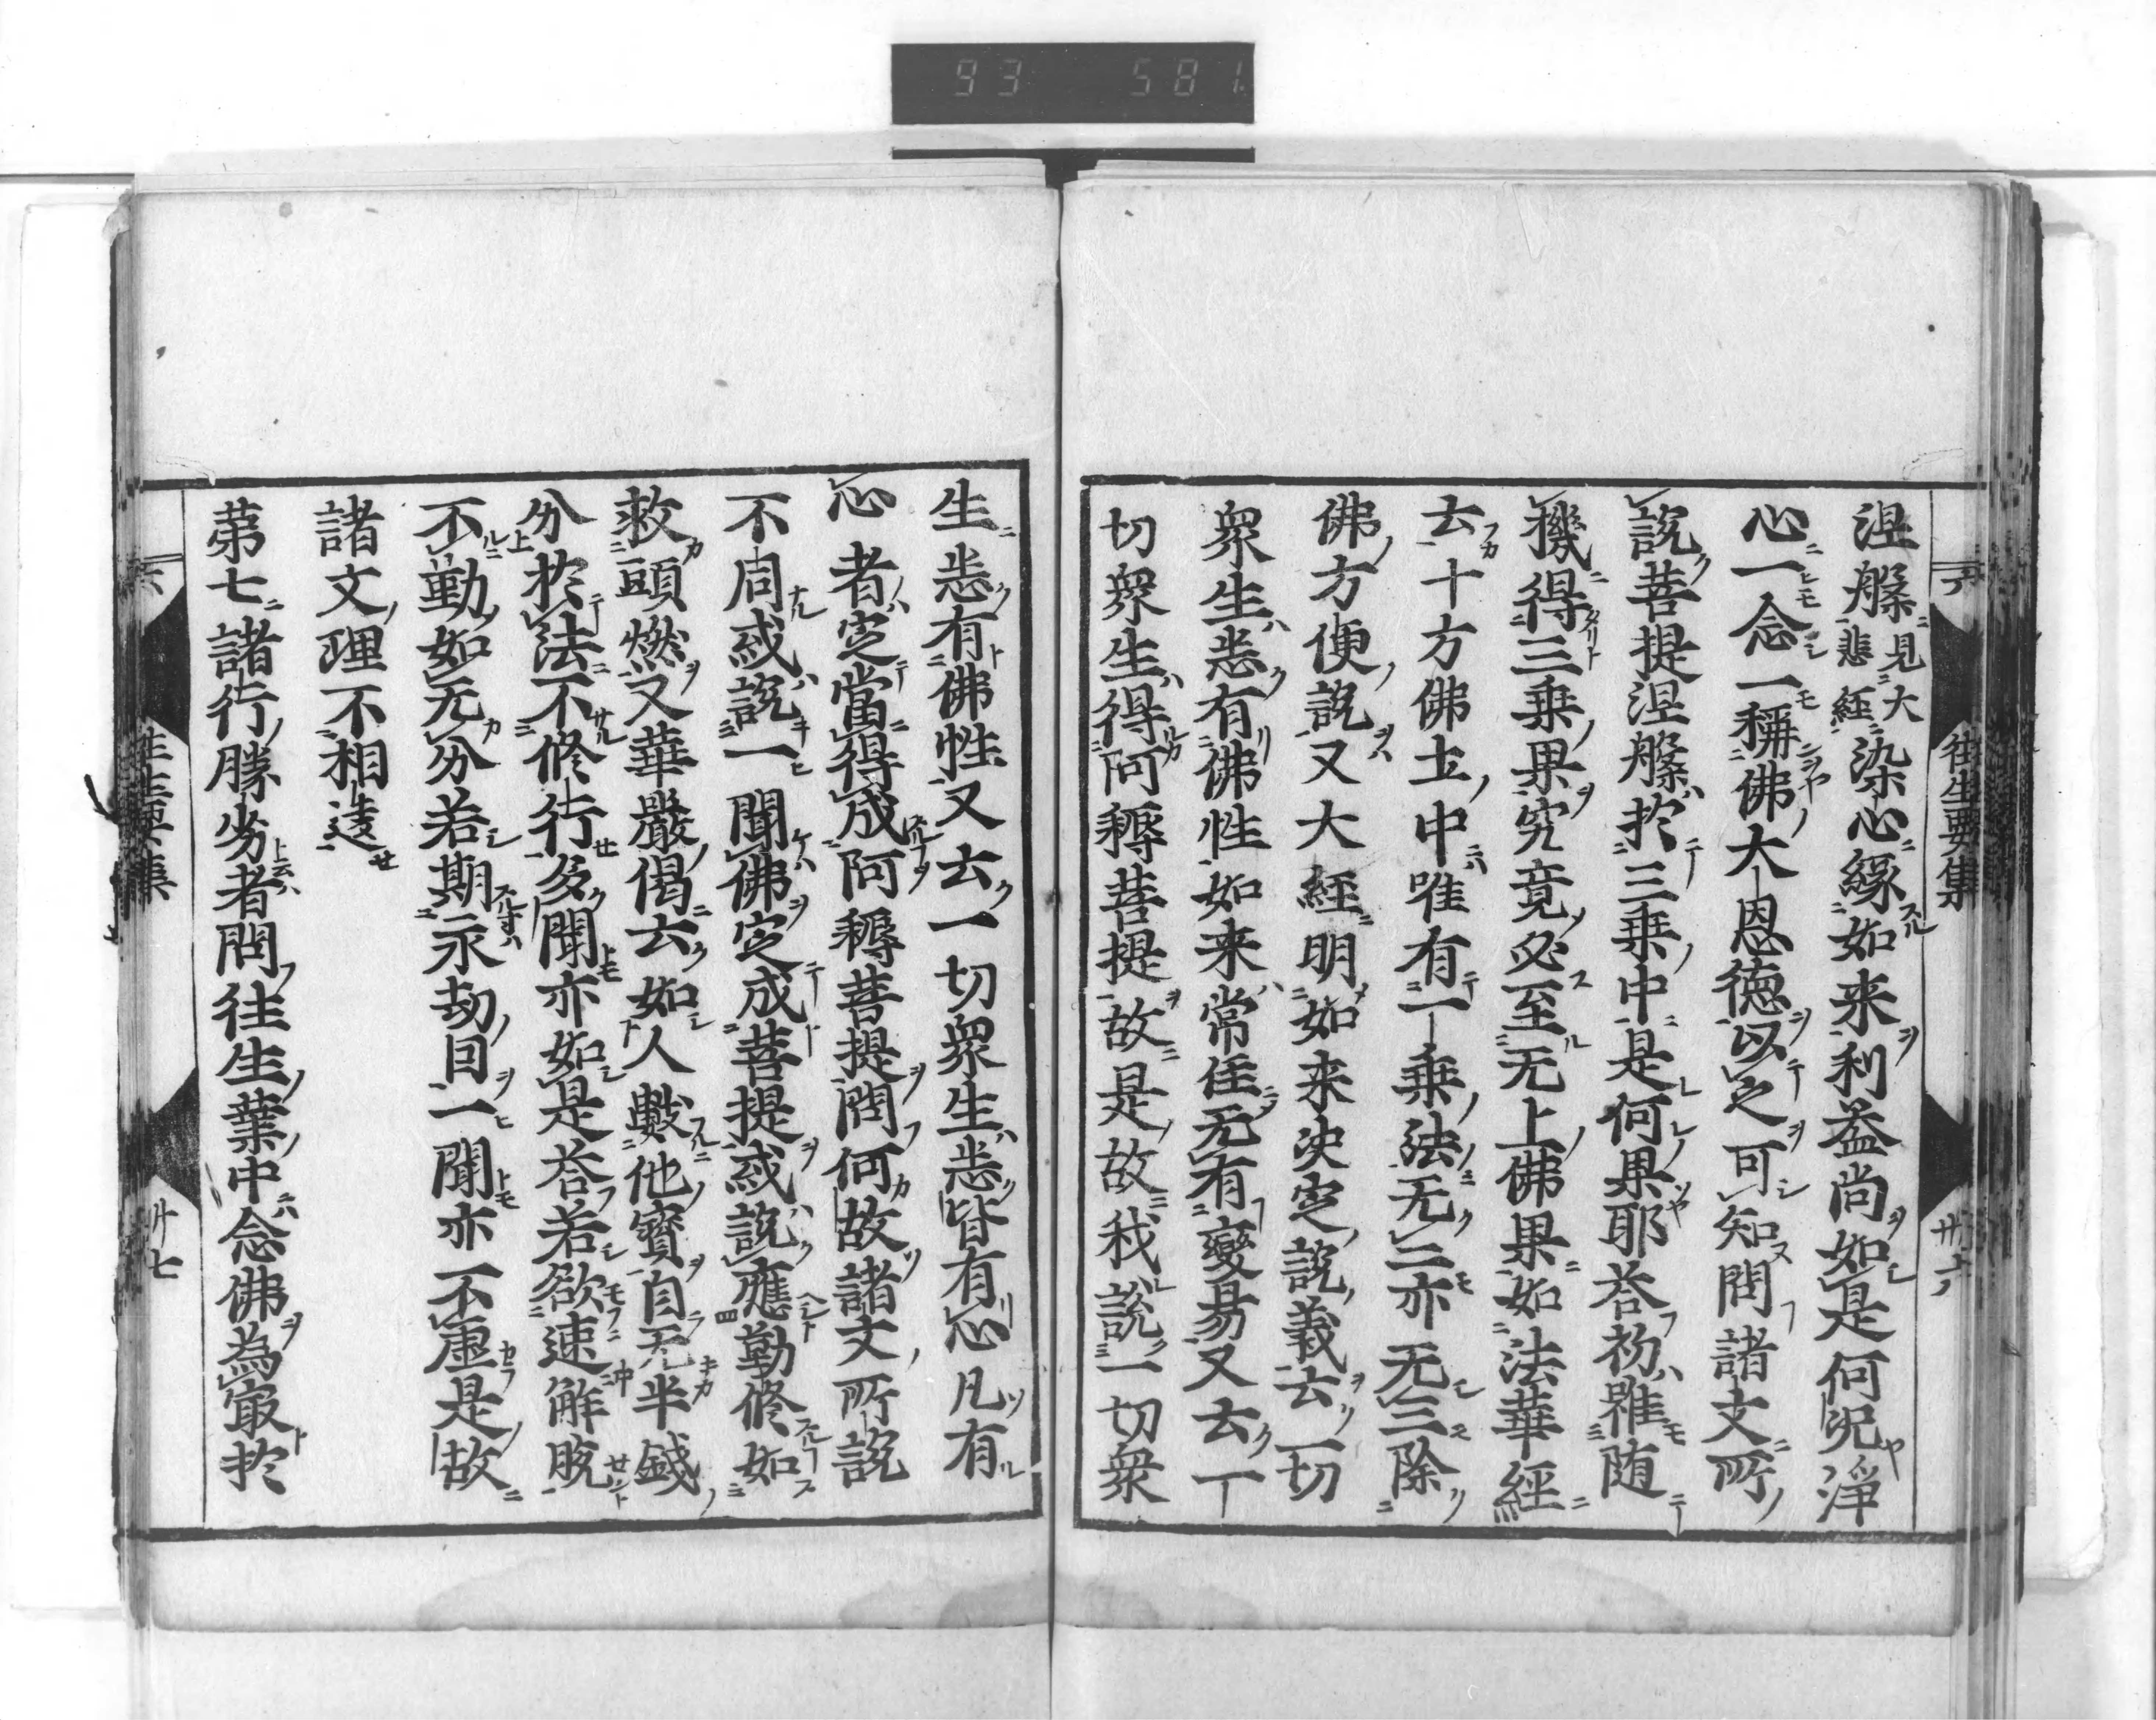 93 581
往生要集
涅槃見大悲經染心緣如来利益尚如是何况淨
心一念一稱佛大恩德以之可知問諸文所
說菩提涅槃於三乗中是何果耶荅初雖随
機得三乗果究竟必至无上佛果如法華經
云十方佛土中唯有一乗法无二亦无三除
佛方便說又大經明如来決定說義云一切
衆生悉有佛性如来常住无有變易又云一
切衆生得阿耨菩提故是故我說一切衆
生悉有佛性又云一切衆生悉皆有心凡有
心者定當得成阿耨菩提問何故諸文所說
不同或說一聞佛定成菩提或說應勤修如
救頭燃又華嚴偈云如人數他寳自无半錢
分於法不修行多聞亦如是荅若欲速解脫
不勤如无分若期永劫因一聞亦不虛是故
諸文理不相違
苐七諸行勝劣者問往生業中念佛為㝡於
往生要集
廿七